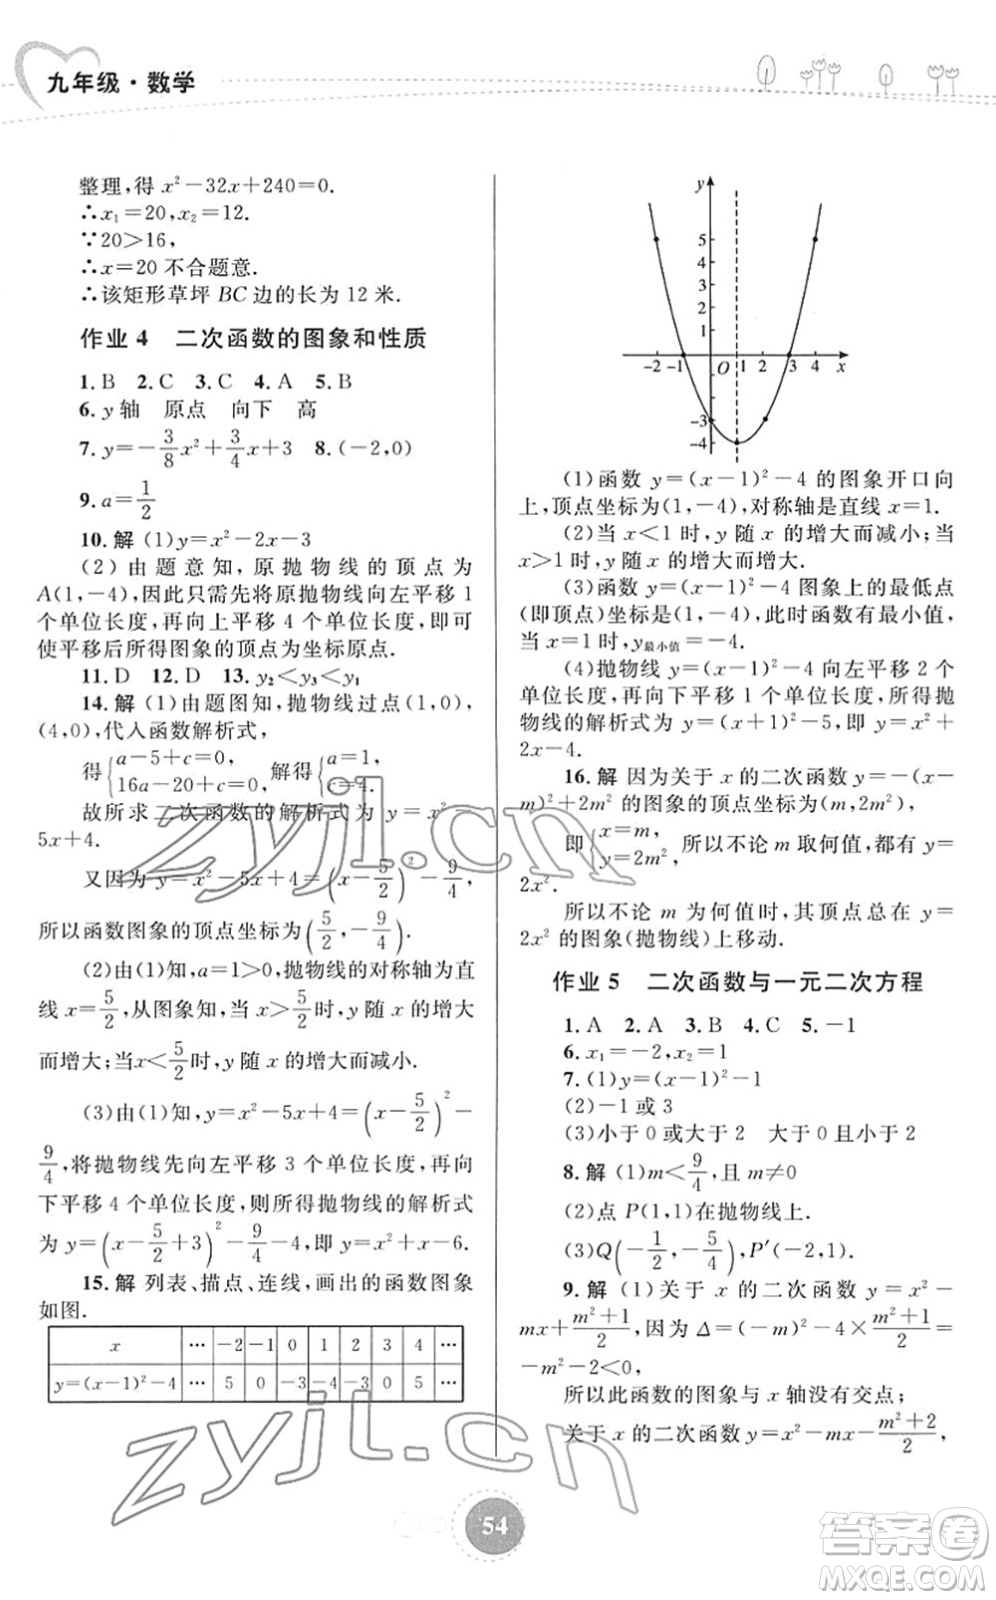 九年级·数学
整理,得 x²-32x+240=0.
∴x₁=20,x₂=12.
∵20>16,
∴x=20 不合题意.
∴该矩形草坪 BC 边的长为 12 米.
作业 4 二次函数的图象和性质
1. B 2. C 3. C 4. A 5. B
6. y 轴 原点 向下 高
7. y=-3/8x²+3/4x+3 8. (-2,0)
9. a=1/2
10. 解 (1)y=x²-2x-3
(2) 由 题 意 知, 原 抛 物 线 的 顶 点 为
A(1,-4),因此只需先将原抛物线向左平移 1
个单位长度,再向上平移 4 个单位长度,即可
使平移后所得图象的顶点为坐标原点.
11. D 12. D 13. y₂<y₃<y₁
14. 解 (1)由题图知,抛物线过点(1,0),
(4,0),代入函数解析式,
得{a-5+c=0, 16a-20+c=0, 解得{a=1, c=4.
故所求二次函数的解析式为 y=x²-
5x+4.
又因为 y=x²-5x+4=(x-5/2)²-9/4,
所以函数图象的顶点坐标为(5/2,-9/4).
(2)由(1)知,a=1>0,抛物线的对称轴为直
线 x=5/2,从图象知,当 x>5/2时,y 随 x 的增大
而增大;当x<5/2时,y 随 x 的增大而减小.
(3)由(1)知,y=x²-5x+4=(x-5/2)²-
9/4,将抛物线先向左平移 3 个单位长度,再向
下平移 4 个单位长度,则所得抛物线的解析式
为 y=(x-5/2+3)²-9/4-4,即 y=x²+x-6.
15. 解 列表、描点、连线,画出的函数图象
如图.
x … -2 -1 0 1 2 3 4 …
y=(x-1)²-4 … 5 0 -3 -4 -3 0 5 …
y
5
4
3
2
1
-2 -1 O 1 2 3 4 x
-3
-4
(1)函数 y=(x-1)²-4 的图象开口向
上,顶点坐标为(1,-4),对称轴是直线 x=1.
(2)当 x<1 时,y 随 x 的增大而减小;当
x>1 时,y 随 x 的增大而增大.
(3)函数 y=(x-1)²-4 图象上的最低点
(即顶点)坐标是(1,-4),此时函数有最小值,
当 x=1 时,y最小值=-4.
(4)抛物线 y=(x-1)²-4 向左平移 2 个
单位长度,再向下平移 1 个单位长度,所得抛
物线的解析式为 y=(x+1)²-5,即 y=x²+
2x-4.
16. 解 因为关于 x 的二次函数 y=-(x-
m)²+2m² 的图象的顶点坐标为(m,2m²),
即{x=m, y=2m², 所以不论 m 取何值,都有 y=
2x².
所以不论 m 为何值时,其顶点总在 y=
2x² 的图象(抛物线)上移动.
作业 5 二次函数与一元二次方程
1. A 2. A 3. B 4. C 5. -1
6. x₁=-2,x₂=1
7. (1)y=(x-1)²-1
(2)-1 或 3
(3)小于 0 或大于 2 大于 0 且小于 2
8. 解 (1)m<9/4,且 m≠0
(2)点 P(1,1)在抛物线上.
(3)Q(-1/2,-5/4),P′(-2,1).
9. 解 (1)关于 x 的二次函数 y=x²-
mx+(m²+1)/2,因为 Δ=(-m)²-4×(m²+1)/2=
-m²-2<0,
所以此函数的图象与 x 轴没有交点;
关于 x 的二次函数 y=x²-mx-(m²+2)/2,
54
zyjl.cn
zyjl.cn
答案圈
MXQE.COM